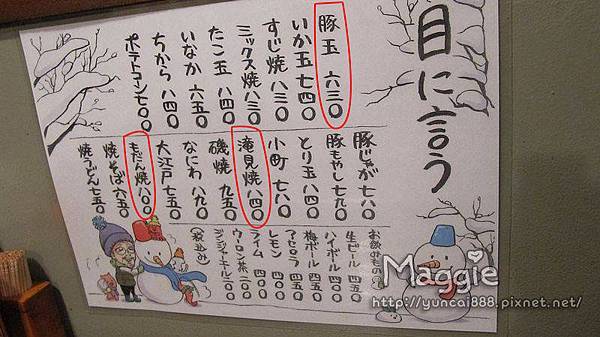 目に言う
豚玉 六三〇
いか玉 七四〇
すじ焼 八三〇
ミックス焼 八三〇
たこ玉 八四〇
いなか 六五〇
ちから 八四〇
ポテトコーン 七〇〇
豚じゃが 七八〇
豚もやし 七九〇
とり玉 八四〇
小町 七八〇
滝見焼 八四〇
磯焼 九五〇
なにわ 八九〇
大江戸 七五〇
もだん焼 八〇〇
焼そば 六五〇
焼うどん 七五〇
お飲のもの
生ビール 四五〇
ハイボール 四五〇
梅ボール 四五〇
アセロラ 四〇〇
レモン 四〇〇
ライム 四〇〇
ウーロン茶 二〇〇
ジンジャーエール 二〇〇
(税込み)
Maggie
http://yuncai888.pixnet.net/